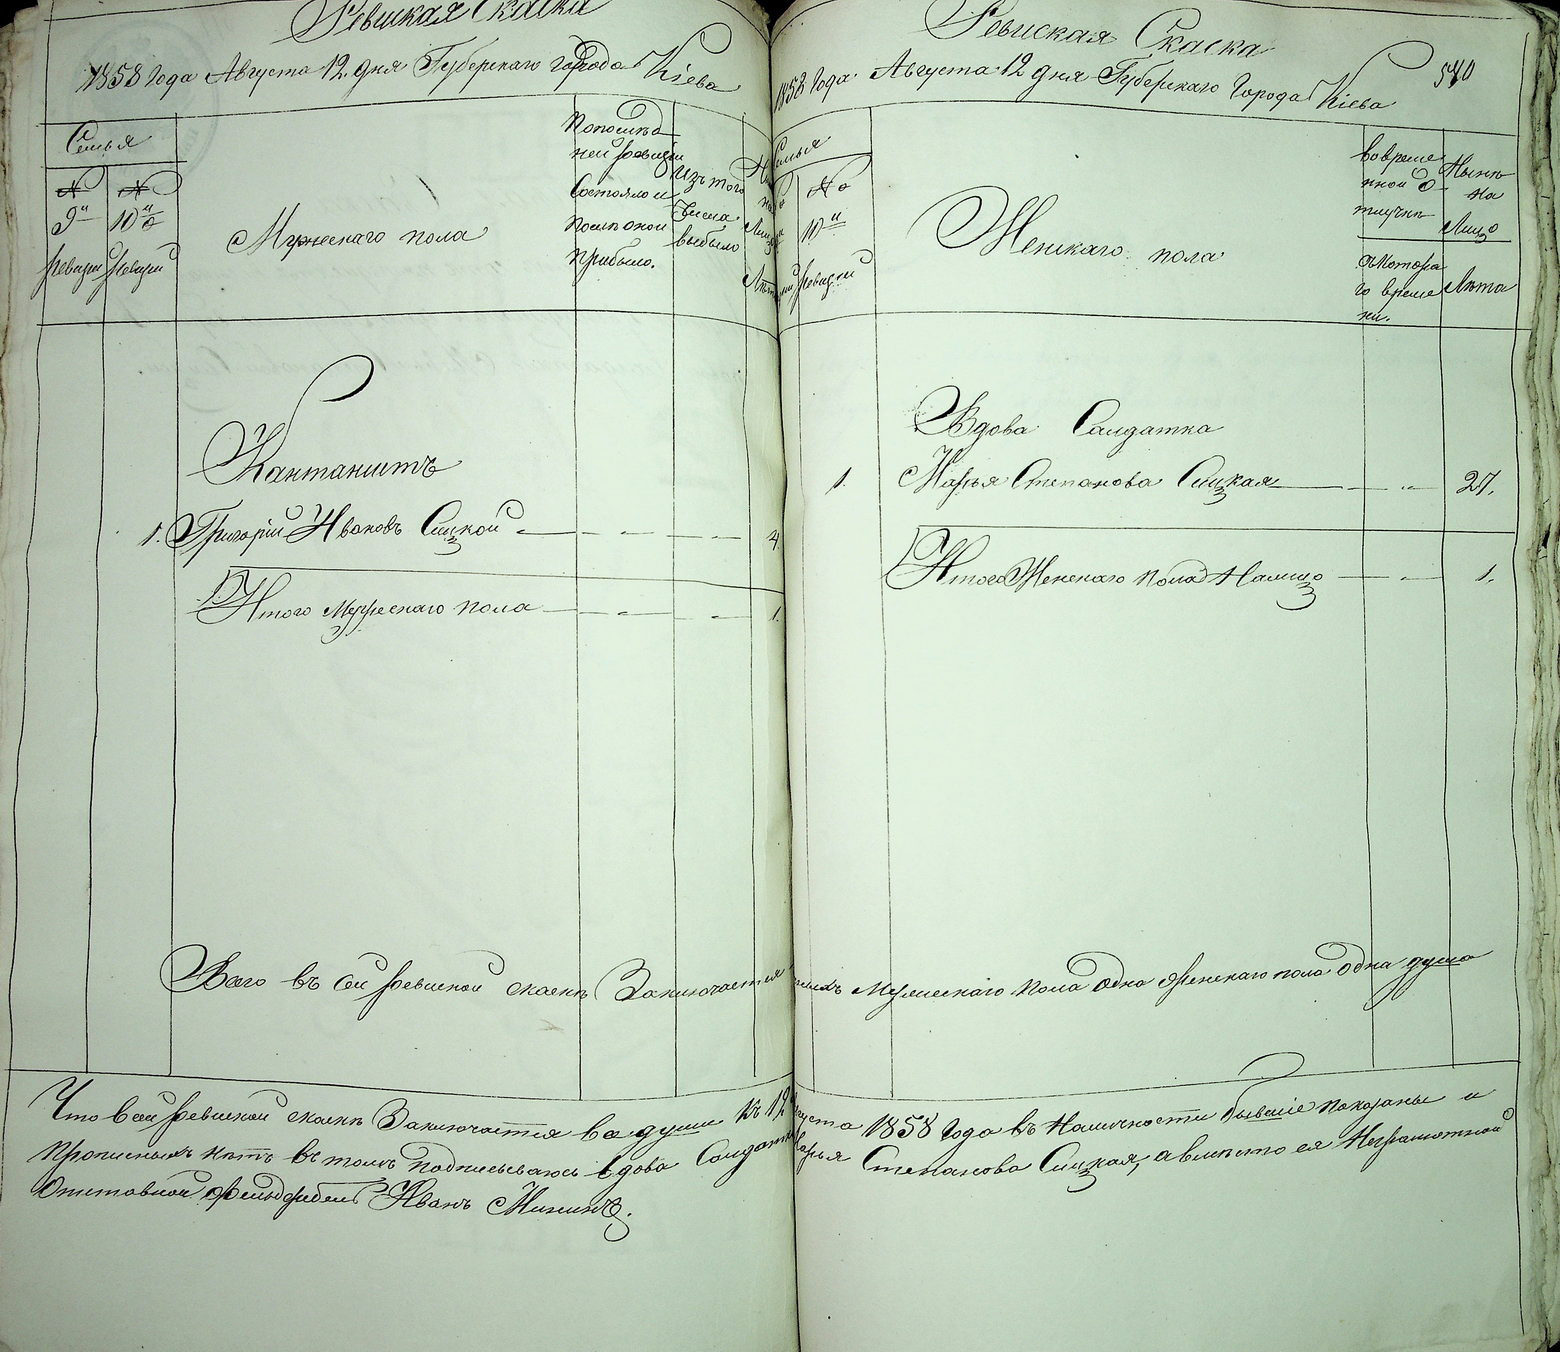 Ревиская Скаска
1858 Года Августа 12 дня Губерскаго города Кіева
Семья
№ №
9й 10й
Ревизіи Ревизіи
Мужескаго пола
Попослѣд
ней ревизіи
Состояло и
послѣ оной
прибыло.
Изъ того
Числа
выбыло
Кантанистъ
1. Григорій Ивановъ Сицкой 4
Итого Мужескаго пола 1.
Ревиская Скаска
1858 Года Августа 12 дня Губерскаго Города Кіева
540
Семья
№
10й
Ревизіи
Женскаго пола
вовреме
нной о
тлучкѣ
скотора
го време
ни.
Нынѣ
на
Лицо
Лѣта
Вдова Салдатка
1. Марья Степанова Сицкая 27.
Итого Женскаго пола Налицо 1.
Всего въ сей ревиской скаскѣ Заключается Мужескаго пола Одна Женскаго пола Одна душа
Что в сей ревиской скаскѣ Заключается все души къ 12 Августа 1858 Года въ Наличности бывшіе показаны и
прописныхъ нѣтъ въ томъ подписываюсь вдова Солдатка Марья Степанова Сицкая, а вместо ея Неграмотной
Отставной фельдфебель Иванъ Мининъ.